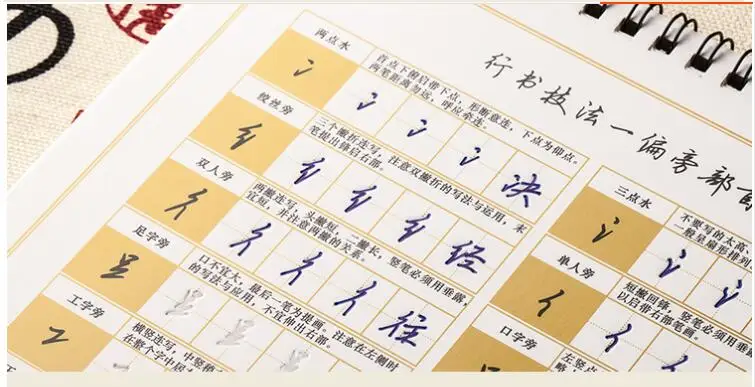 行书技法一偏旁部首
两点水
首点下俯启带下点，形断意连，下点为仰点。
两笔距离勿远，呼应牵连。
冫
冫
冫
冫
决
绞丝旁
三个撇折连写，注意双撇折的写法与运用，末
笔提出锋启右部。
纟
纟
纟
纟
经
双人旁
两撇连写，头撇短，二撇长，竖笔必须用垂露，
宜短，并注意两撇的关系。
彳
彳
彳
彳
往
足字旁
口不宜大，最后一笔为提画。注意在左侧时
的写法与应用，不宜伸出右部。
工字旁
横竖连写，中竖
在整个字中居
三点水
不要写的太高、
一般呈扇形排列
氵
氵
氵
单人旁
短撇回锋，竖笔必须用垂
以启带右部笔画。
亻
亻
亻
口字旁
左竖点
略